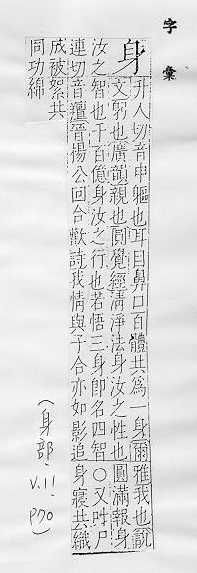 字彙
身
升人切音申軀也耳目鼻口百體共爲一身爾雅我也說
文躬也廣韻親也圓覺經清淨法身汝之性也圓滿報身
汝之智也千百億身汝之行也若悟三身卽名四智○又吋尸
連切音羶晉楊公回合歡詩我情與子合亦如影追身寢共織
成被絮共
同功綿
(身部. V.11. P70)